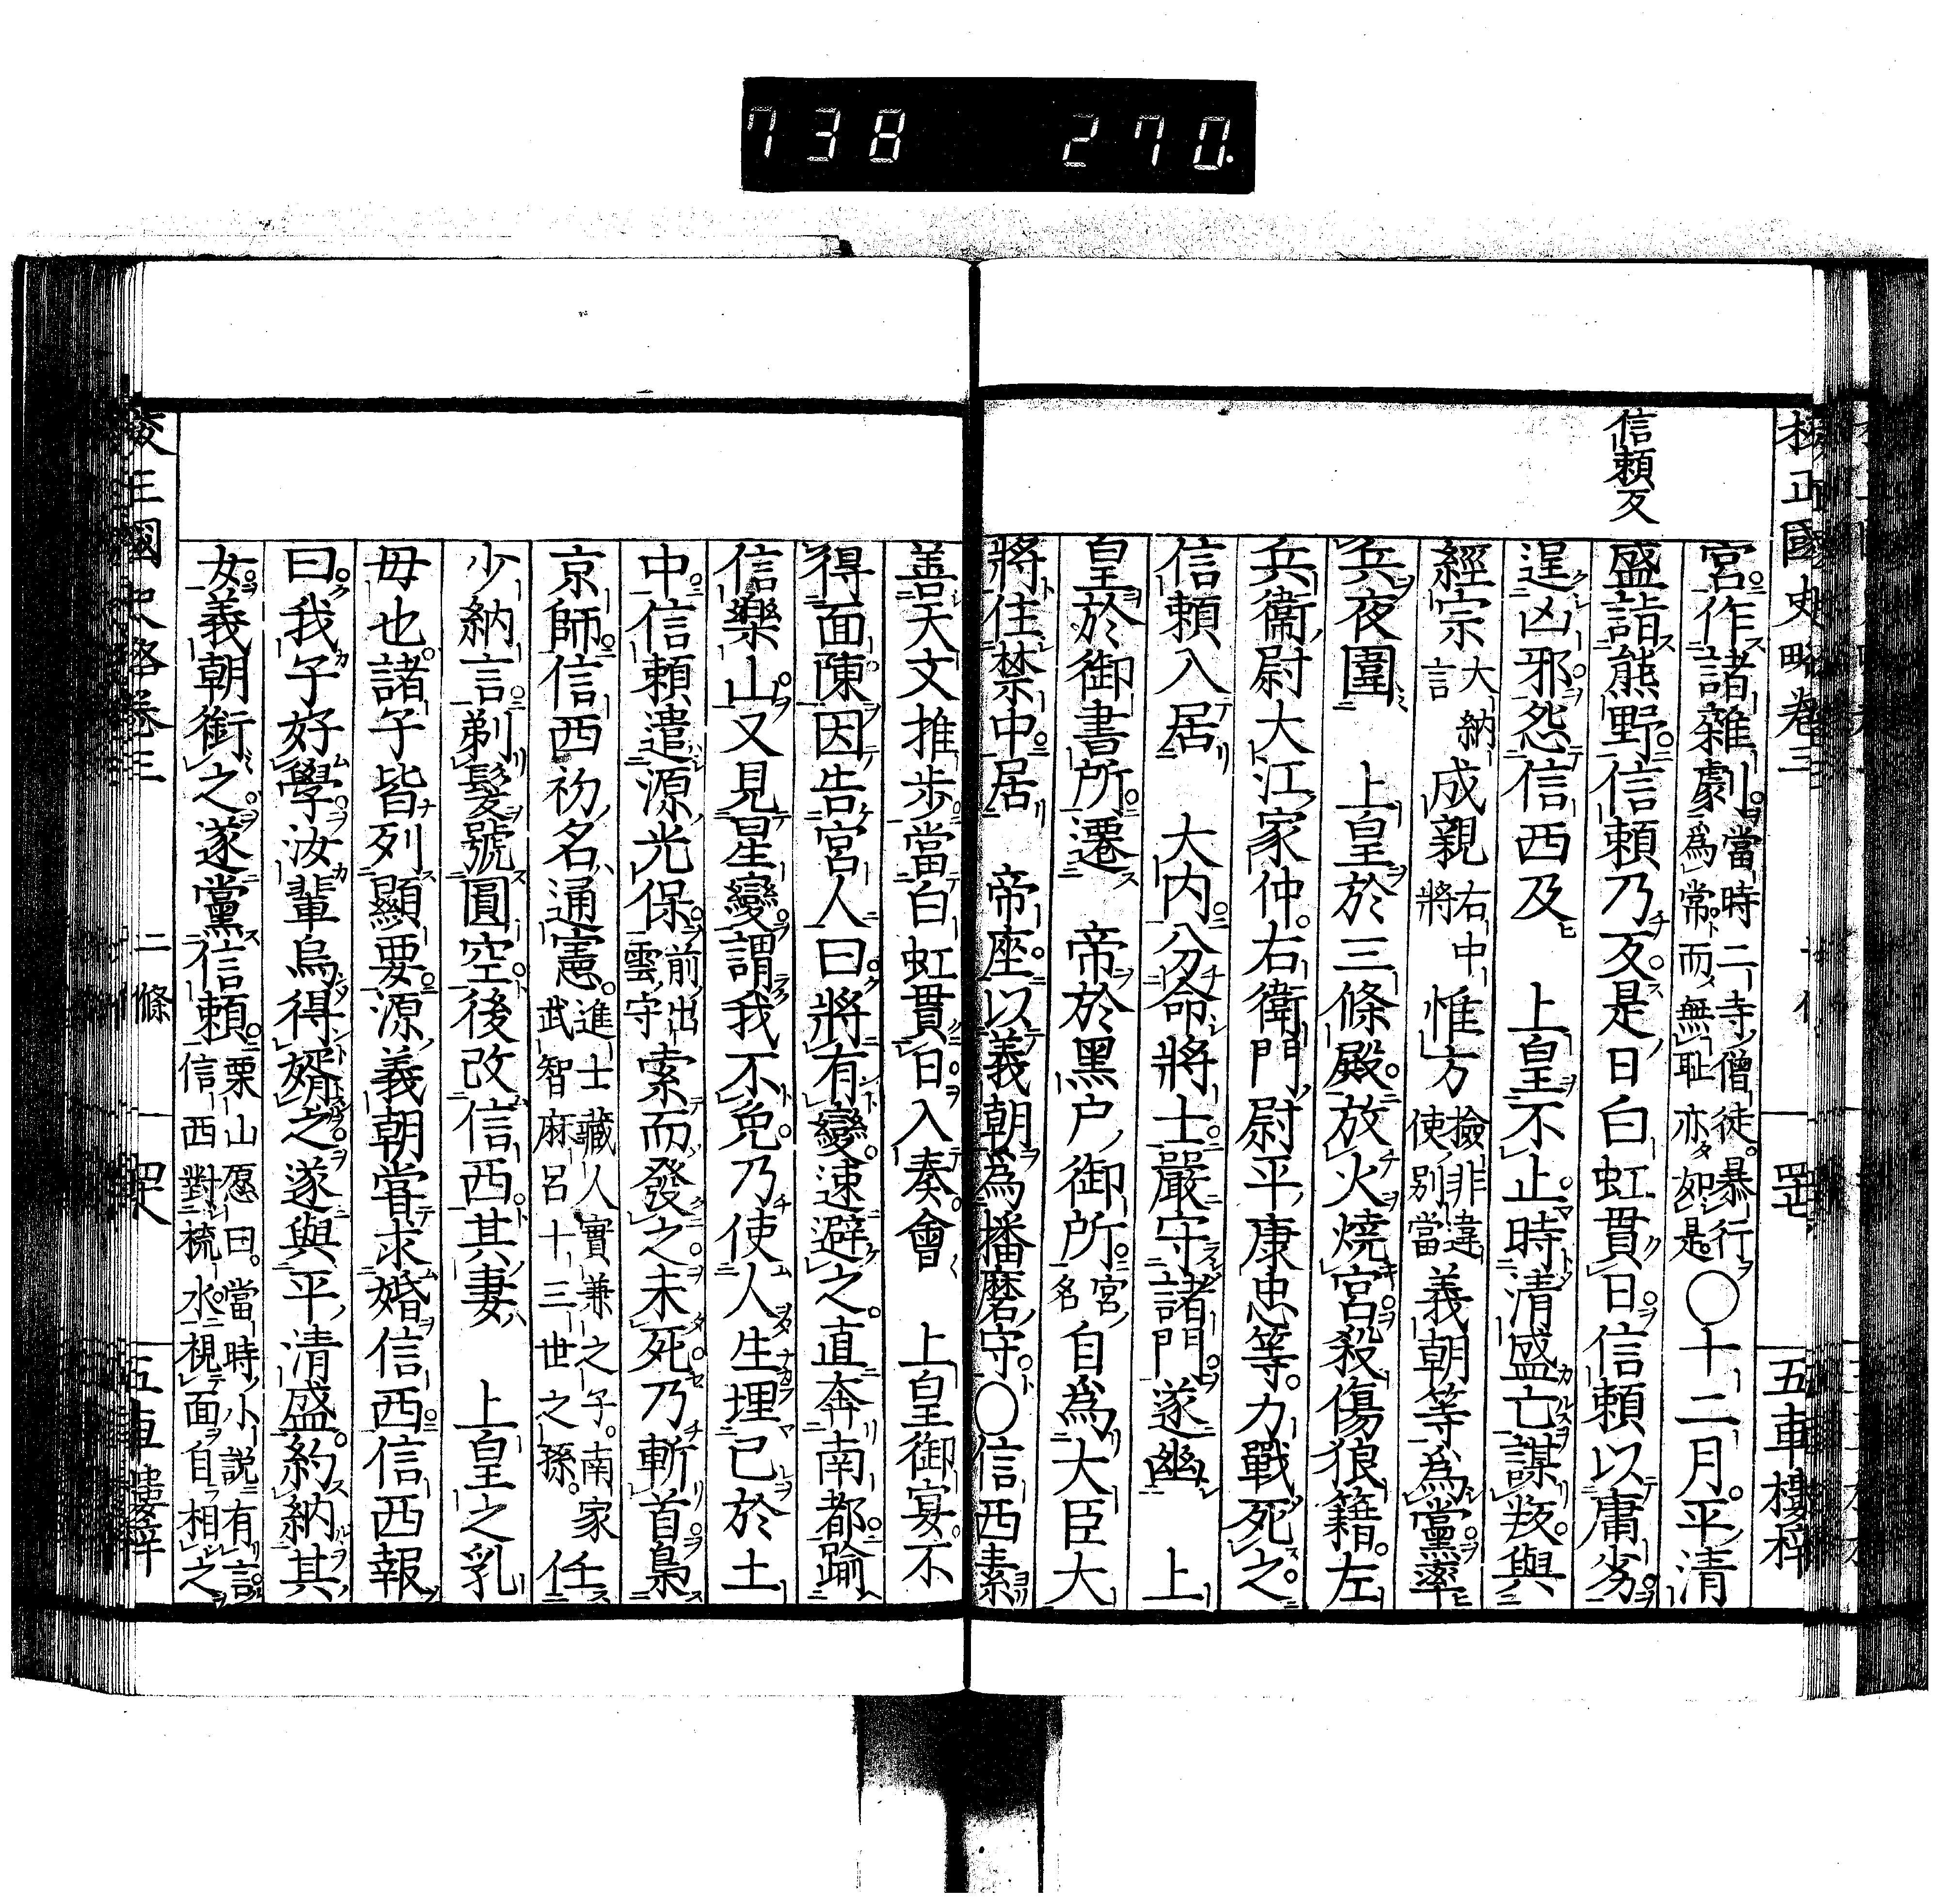 738 270.
校正國史略卷三
五車樓梓
信頼反
宮作諸雜劇當時二寺僧徒暴行爲常而無耻亦如是〇十二月平清
盛詣熊野信頼乃反是日白虹貫日信頼以庸劣
逞凶邪怨信西及　上皇不止時清盛亡謀叛與
經宗大納言成親右中將惟方撿非違使別當義朝等爲黨率
兵夜圍　上皇於三條殿放火燒宮殺傷狼籍左
兵衞尉大江家仲右衞門尉平康忠等力戰死之
信頼入居　大内分命將士嚴守諸門遂幽　上
皇於御書所遷　帝於黑戸御所宮名自爲大臣大
將住禁中居　帝座以義朝爲播磨守〇信西素
善天文推步當白虹貫日入奏會　上皇御宴不
得面陳因告宮人曰將有變速避之直奔南都踰
信樂山又見星變謂我不免乃使人生埋已於土
中信頼遣源光保前出雲守索而發之未死乃斬首梟
京師信西初名通憲進士藏人實兼之子南家武智麻呂十三世之孫任
少納言剃髮號圓空後改信西其妻　上皇之乳
母也諸子皆列顯要源義朝嘗求婚信西信西報
曰我子好學汝輩烏得婿之遂與平清盛約納其
女義朝銜之遂黨信頼栗山愿曰當時小説有言信西對梳水視面自相之
二條